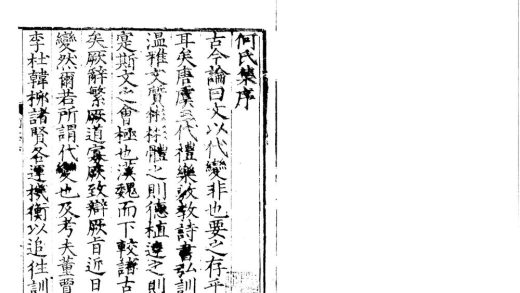 何氏集序
古今論曰文以代變非也要之存乎
耳矣唐虞三代禮樂敦教詩書弘訓
温雅文質彬彬體之則德植達之則
寔斯文之會極也漢魏而下較諸古
矣厥辭繁厥道寡厥致辯厥旨近日
變然爾若所謂代變也及考夫董賈
李杜韓柳諸賢各運機衡以追往訓